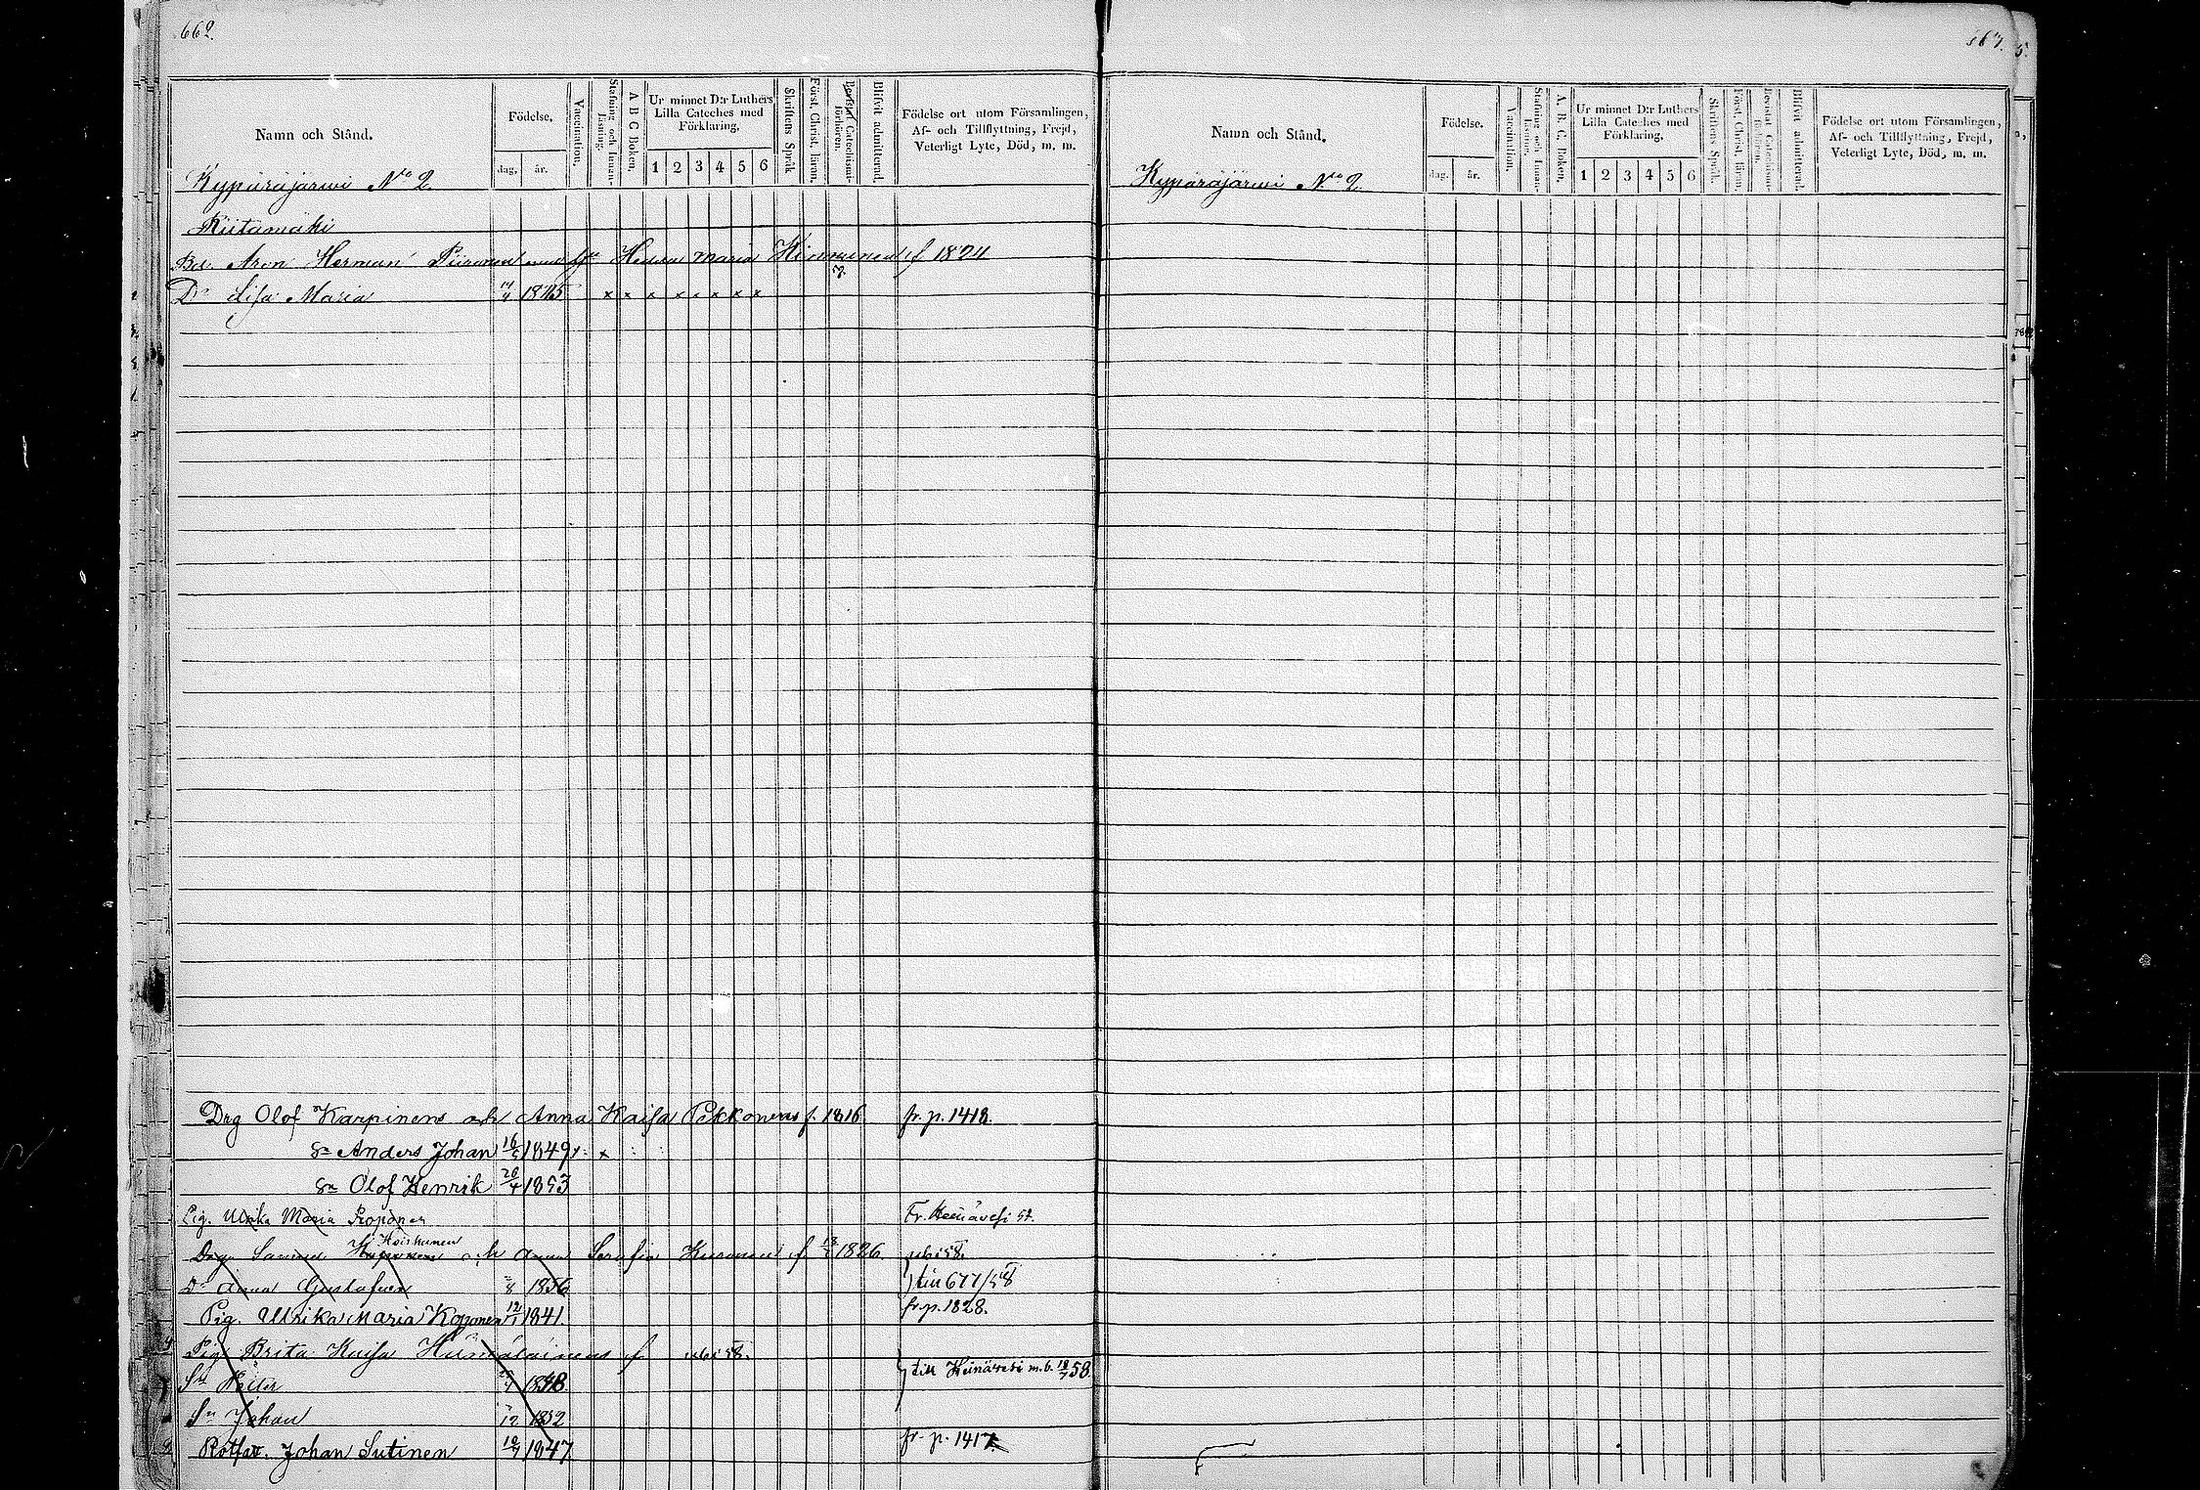 662.
Namn och Stånd.
Födelse,
dag,
år.
Vaccination,
Stafning och Innan-läsning,
A B C Boken,
Ur minnet D:r Luthers Lilla Cateches med Förklaring,
1 2 3 4 5 6
Skriftens Språk
Först. Christ. läran,
Catechismi-förhören.
Blifvit admitterad.
Födelse ort utom Församlingen,
Af- och Tillflyttning, Frejd,
Veterligt Lyte, Död, m. m.
Kypäräjärwi No 2
Riitamäki
Aron Herman Piironen Maria f 1824
Dr Lisa Maria 1845 x x x x x x x x
Drg Olof Karpinens och Anna Kaisa Pekkonens f. 1816 fr. p. 1418.
Sn Anders Johan 16/5 1849 x
Sn Olof Henrik 20/4 1853
Pig. Ulrika Maria Fr. Heinävesi 57.
Hoiskunen
Samuel och Anna Serafia f 1826.
Dr Anna Gustafva 1856 till 677/58
Pig. Ulrika Maria Kopponen 12/1 1841. fr. p. 1828.
Pig. Brita Kaisa f
Sn Peter 1848 till Heinävesi m. b. 58.
Sn Johan 12 1852
Johan Sutinen 1847 fr. p. 1417
Namn och Stånd.
Födelse.
dag.
år.
Vaccination.
Stafning och Innan-läsning.
A. B. C. Boken,
Ur minnet D:r Luthers Lilla Cateches med Förklaring.
1 2 3 4 5 6
Skriftens Språk.
Först. Christ. läran,
Bevistat Catechismi-förhören.
Blifvit admitterad.
Födelse ort utom Församlingen,
Af- och Tillflyttning, Frejd,
Veterligt Lyte, Död, m. m.
Kypäräjärwi No 2.